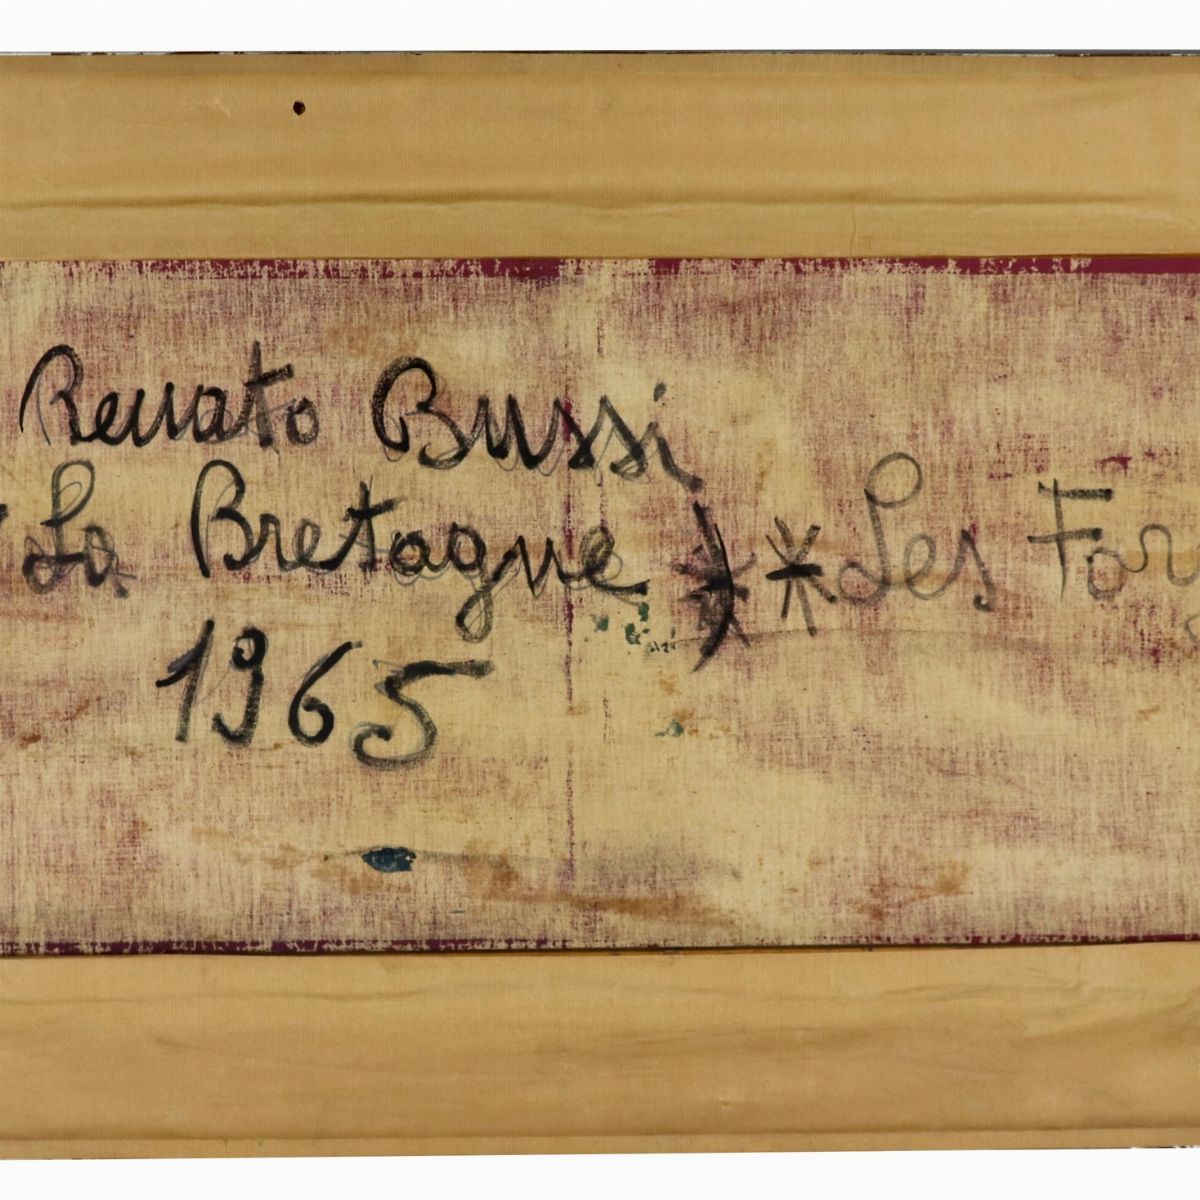 Renato Bussi
La Bretagne ) * Les For
1965